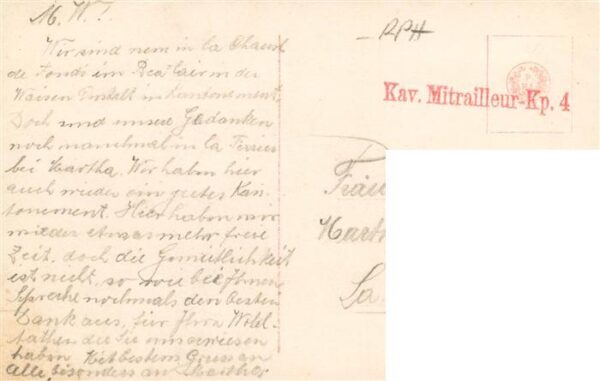 M. W. T.
Wir sind nem in la Chaud
de Fondi im
Waisen in Kantonement.
Doch sind unsere Gedanken
noch manchmal in la Ferriere
bei Martha. Wir haben hier
auch wieder ein gutes Kan-
tonement. Hier haben wir
wieder etwas mehr freie
Zeit, doch die Gemütlichkeit
ist nicht, so wie bei Ihnen
Spreche nochmals den besten
Dank aus, für Ihre Wohl-
tathen die Sie uns erwiesen
haben. Mit bestem Gruss an
alle, besonders an Marthe
RPH
Kav. Mitrailleur-Kp. 4
Fräu
Marth
La